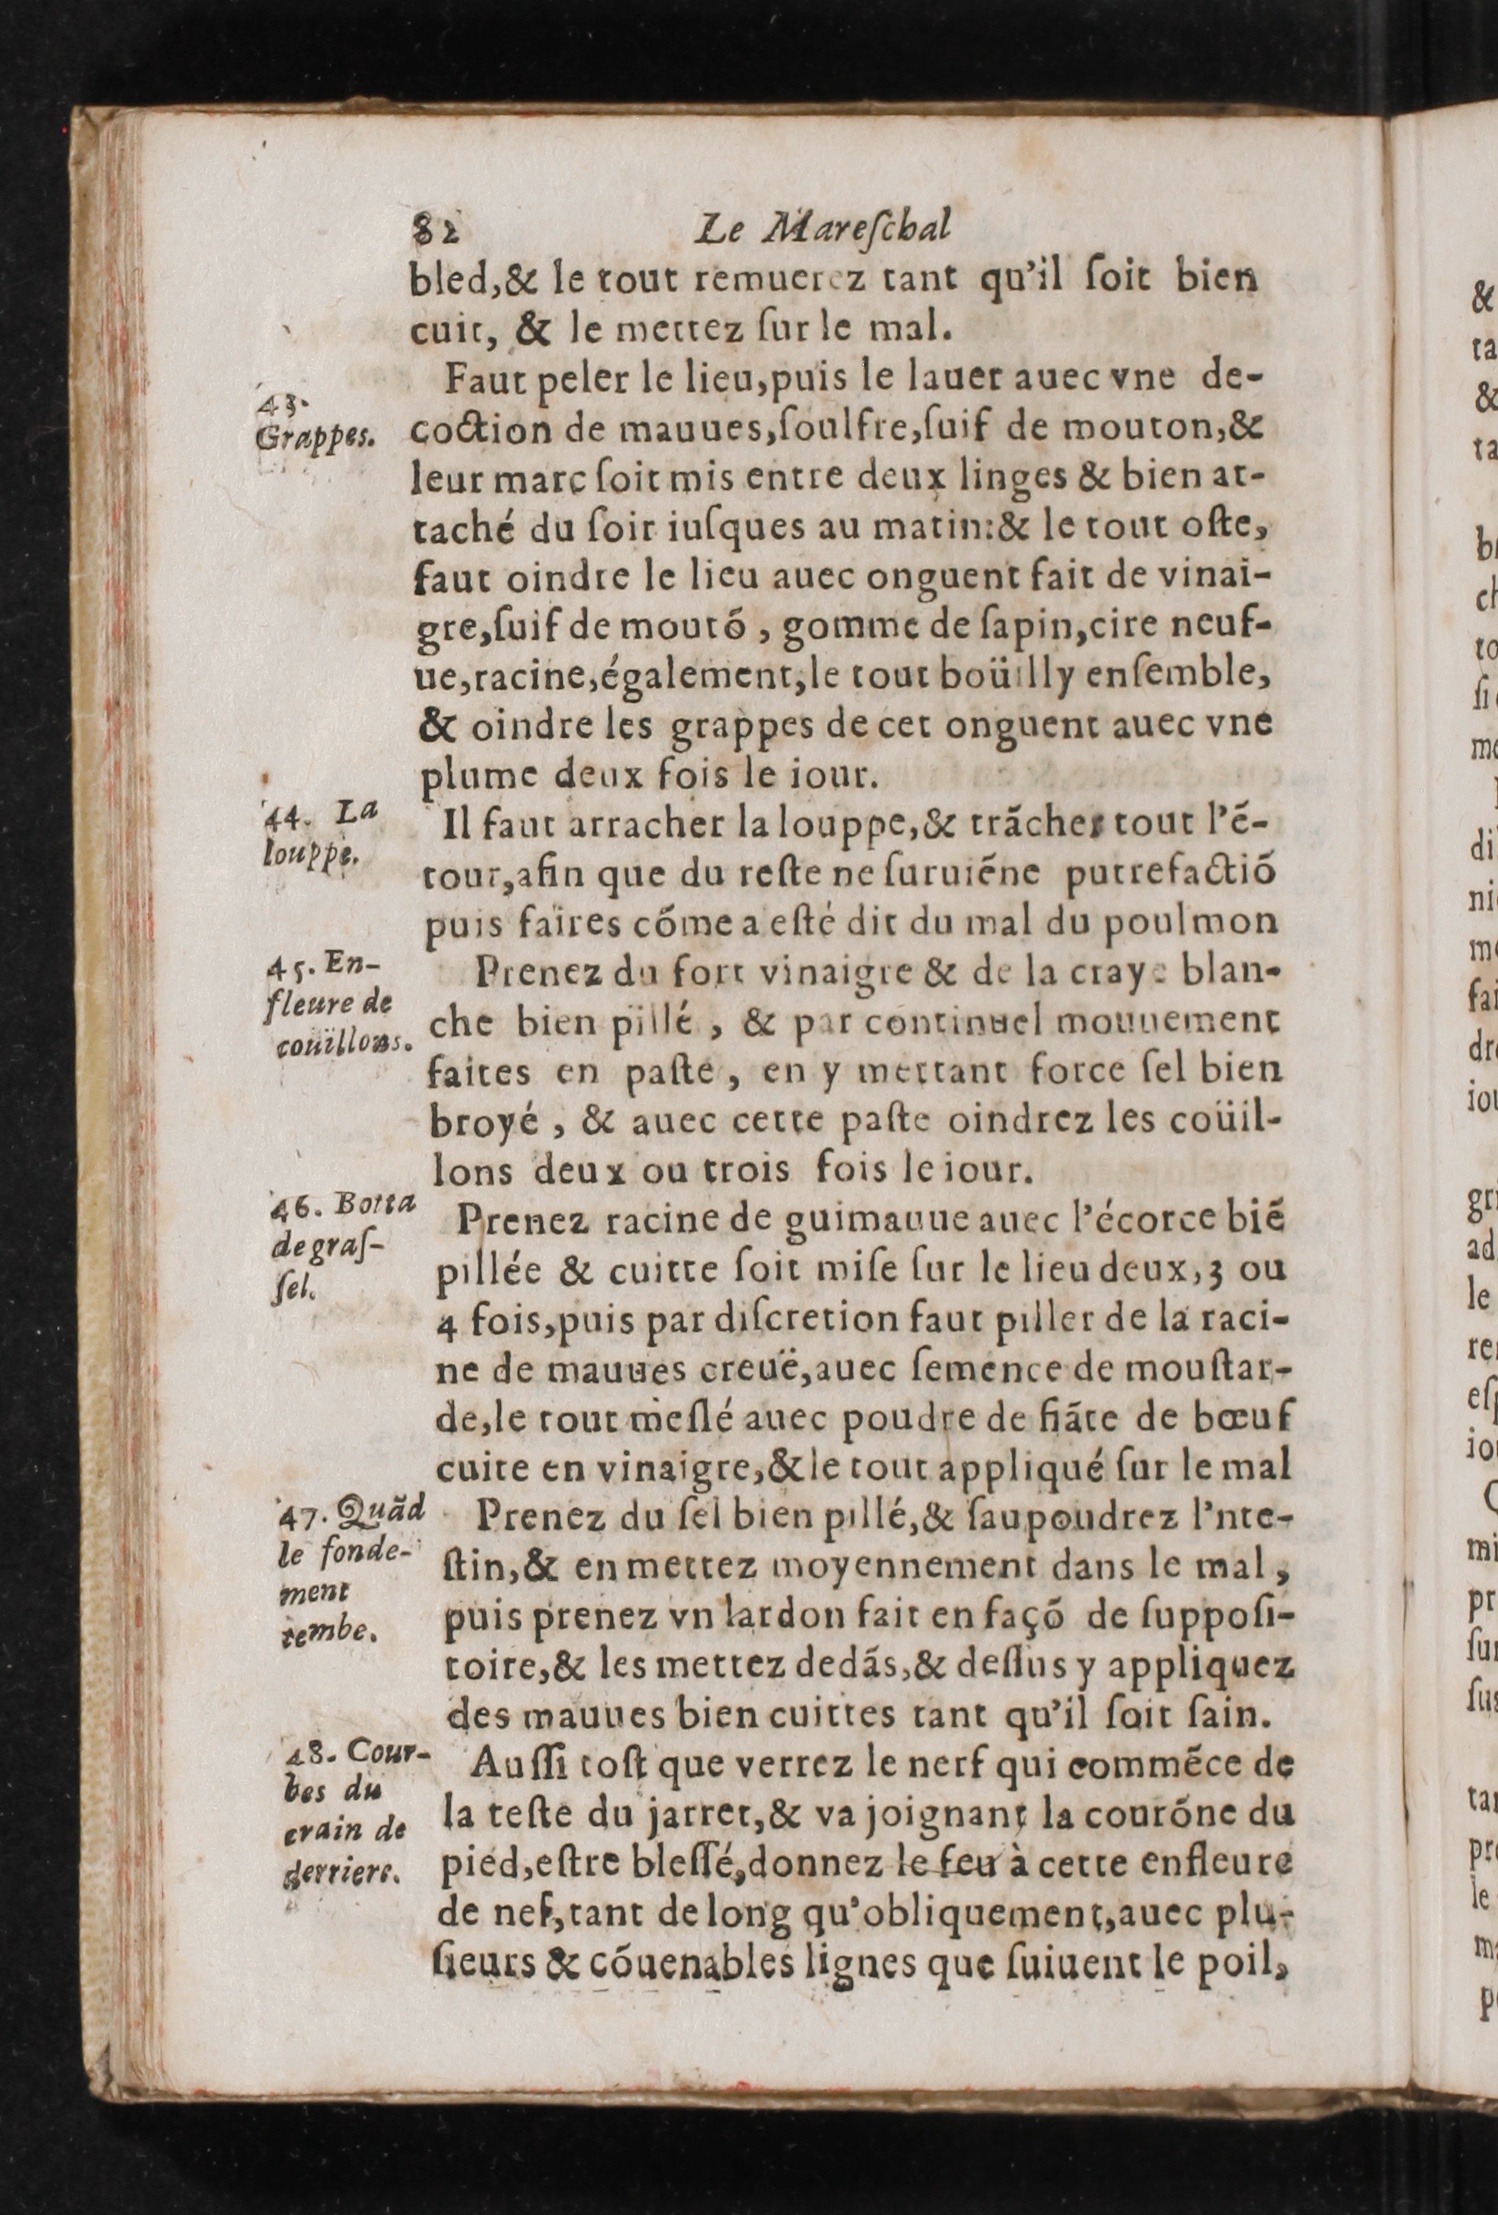 82 Le Mareſchal
bled,& le tout remuerez tant qu'il ſoit bien
cuit, & le mettez ſur le mal.
43.
Grappes.
Faut peler le lieu,puis le lauer auec vne de-
coction de mauues,ſoulfre,ſuif de mouton,&
leur marc ſoit mis entre deux linges & bien at-
taché du ſoir iuſques au matin:& le tout oſte,
faut oindre le lieu auec onguent fait de vinai-
gre,ſuif de moutõ , gomme de ſapin,cire neuf-
ue,racine,également,le tout boüilly enſemble,
& oindre les grappes de cet onguent auec vne
plume deux fois le iour.
44. La
louppe.
Il faut arracher la louppe,& trãcher tout l'ẽ-
tour,afin que du reſte ne ſuruiẽne putrefactiõ
puis faires cõme a eſté dit du mal du poulmon
45. En-
fleure de
coüillons.
Prenez du fort vinaigre & de la craye blan-
che bien pillé , & par continuel mouuement
faites en paſte , en y mettant force ſel bien
broyé , & auec cette paſte oindrez les coüil-
lons deux ou trois fois le iour.
46. Botta
de graſ-
ſel.
Prenez racine de guimauue auec l'écorce biẽ
pillée & cuitte ſoit miſe ſur le lieu deux,3 ou
4 fois,puis par diſcretion faut piller de la raci-
ne de mauues creuë,auec ſemence de mouſtar-
de,le tout meſlé auec poudre de fiãte de bœuf
cuite en vinaigre,&le tout appliqué ſur le mal
47. Quãd
le fonde-
ment
tembe.
Prenez du ſel bien pillé,& ſaupoudrez l'nte-
ſtin,& en mettez moyennement dans le mal ,
puis prenez vn lardon fait en façõ de ſuppoſi-
toire,& les mettez dedãs,& deſſus y appliquez
des mauues bien cuittes tant qu'il ſoit ſain.
48. Cour-
bes du
crain de
derriere.
Auſſi toſt que verrez le nerf qui commẽce de
la teſte du jarret,& va joignant la courõne du
pied,eſtre bleſſé,donnez le feu à cette enfleure
de nef,tant de long qu'obliquement,auec plu-
ſieurs & cõuenables lignes que ſuiuent le poil,